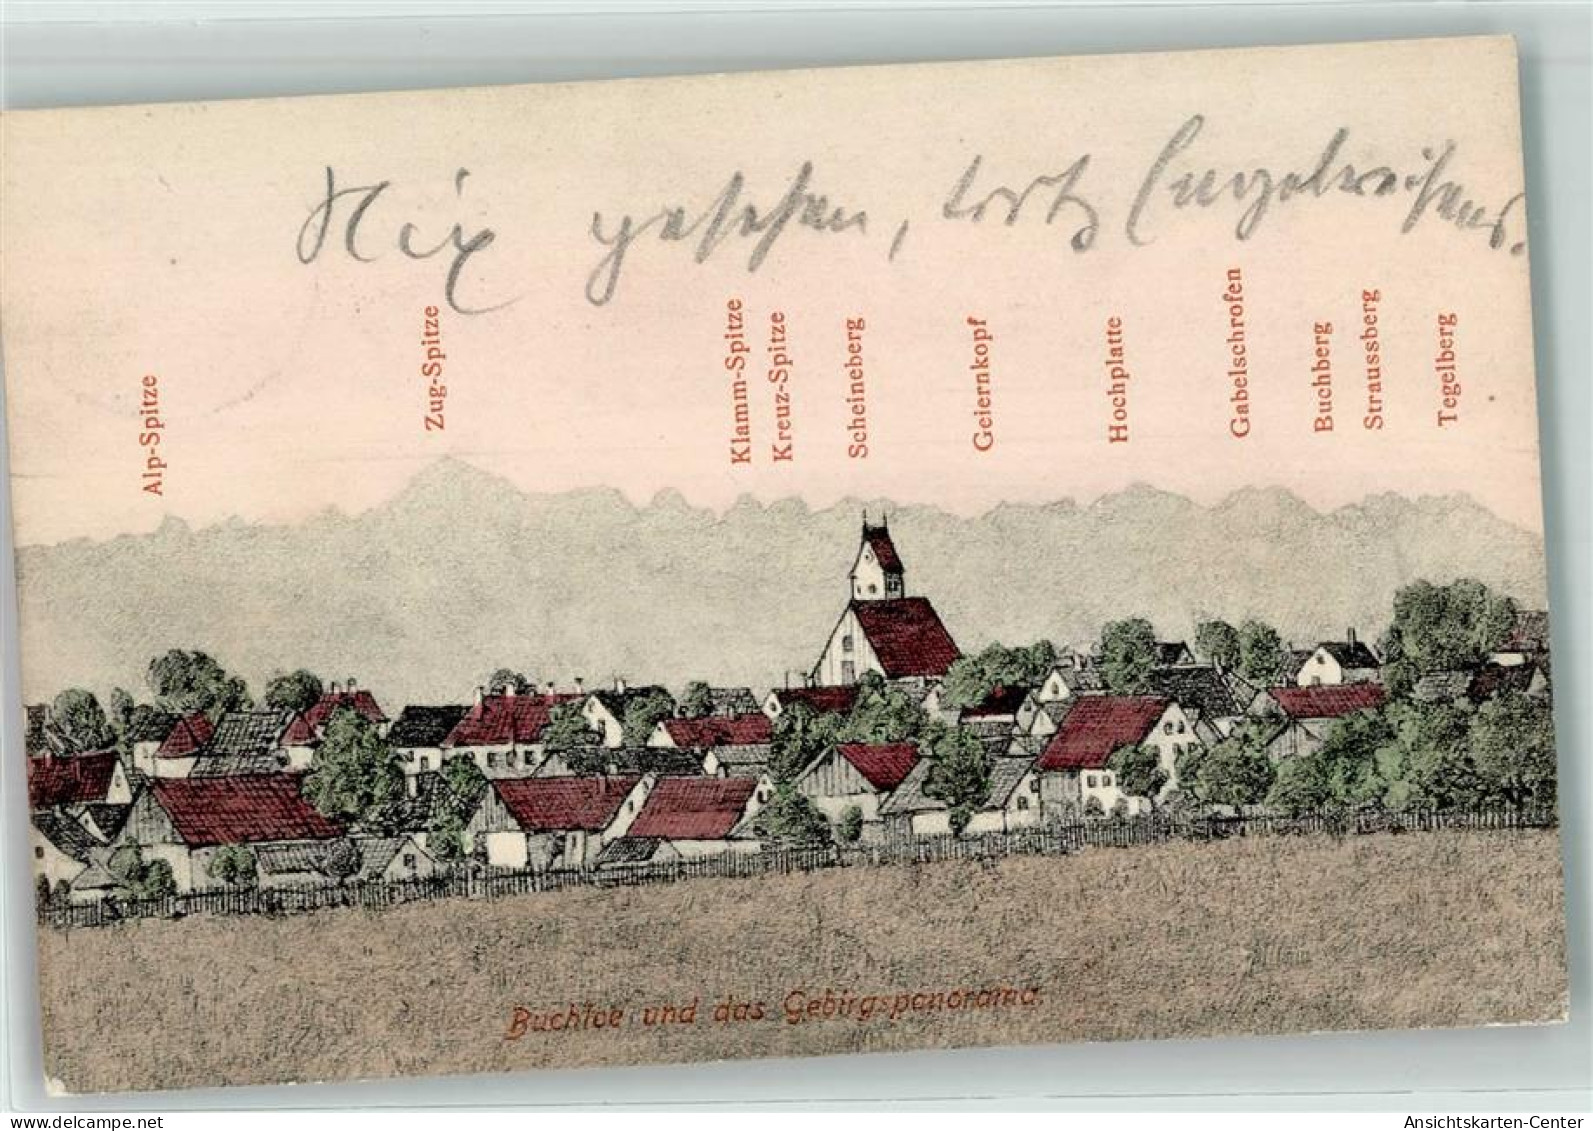 Nix gesehen, trotz Engelreisens.
Alp-Spitze
Zug-Spitze
Klamm-Spitze
Kreuz-Spitze
Scheineberg
Geiernkopf
Hochplatte
Gabelschrofen
Buchberg
Straussberg
Tegelberg
Buchloe und das Gebirgspanorama.
www.delcampe.net
Ansichtskarten-Center